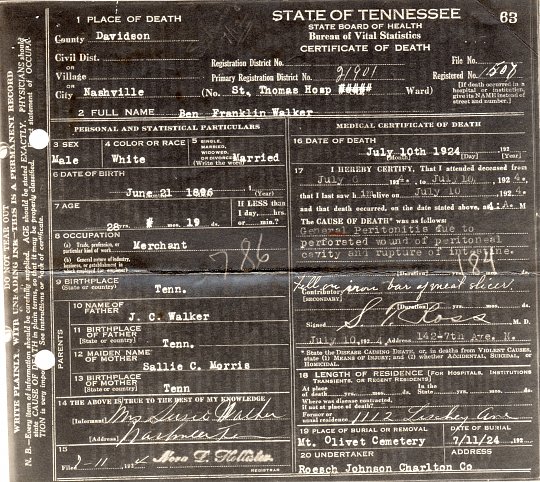 STATE OF TENNESSEE
63
STATE BOARD OF HEALTH
Bureau of Vital Statistics
CERTIFICATE OF DEATH
1 PLACE OF DEATH
County Davidson
Civil Dist.
Village
City Nashville
Registration District No.
File No.
Primary Registration District No. 21901
Registered No. 1507
(No. St. Thomas Hosp Ward)
(If death occurred in a hospital or institution, give its NAME instead of street and number.)
2 FULL NAME Ben Franklin Walker
PERSONAL AND STATISTICAL PARTICULARS
3 SEX
Male
4 COLOR OR RACE
White
5 SINGLE, MARRIED, WIDOWED, OR DIVORCED (Write the word)
Married
6 DATE OF BIRTH
June 21 1896
(Year)
7 AGE
28 yrs. mos. 19 ds.
If LESS than 1 day, hrs. or min.?
8 OCCUPATION
(a) Trade, profession, or particular kind of work
Merchant
(b) General nature of industry, business, or establishment in which employed (or employer)
786
9 BIRTHPLACE
(State or country)
Tenn.
PARENTS
10 NAME OF FATHER
J. C. Walker
11 BIRTHPLACE OF FATHER
(State or country)
Tenn.
12 MAIDEN NAME OF MOTHER
Sallie C. Morris
13 BIRTHPLACE OF MOTHER
(State or country)
Tenn
14 THE ABOVE IS TRUE TO THE BEST OF MY KNOWLEDGE
(Informant) Mrs Susie Walker
(Address)
15
Filed 192 4 Nora D. Hollister
REGISTRAR
MEDICAL CERTIFICATE OF DEATH
16 DATE OF DEATH
July 10th 1924 192
(Month) (Day) (Year)
17 I HEREBY CERTIFY, That I attended deceased from
July 192 4
that I last saw h im alive on July 10 192 4
and that death occurred, on the date stated above, at M
The CAUSE OF DEATH* was as follows:
General Peritonitis due to
perforated wound of peritoneal
cavity and rupture of intestine.
184
(Duration) yrs. mos. ds.
Contributory fell on iron bar of meat slicer
(SECONDARY)
(Duration) yrs. mos. ds.
Signed S. Ross M. D.
July 10, 192 4 (Address) 142-7th Ave. N.
* State the DISEASE CAUSING DEATH, or, in deaths from VIOLENT CAUSES, state (1) MEANS OF INJURY; and (2) whether ACCIDENTAL, SUICIDAL, or HOMICIDAL.
18 LENGTH OF RESIDENCE (FOR HOSPITALS, INSTITUTIONS TRANSIENTS, OR RECENT RESIDENTS)
At place of death yrs. mos. ds. State yrs. mos. ds.
Where was disease contracted, if not at place of death?
Former or usual residence 1112 Ave
19 PLACE OF BURIAL OR REMOVAL
Mt. Olivet Cemetery
DATE OF BURIAL
7/11/24 192
20 UNDERTAKER
Roesch Johnson Charlton Co
ADDRESS
DO NOT TEAR OUT
WRITE PLAINLY, WITH UNFADING INK—THIS IS A PERMANENT RECORD